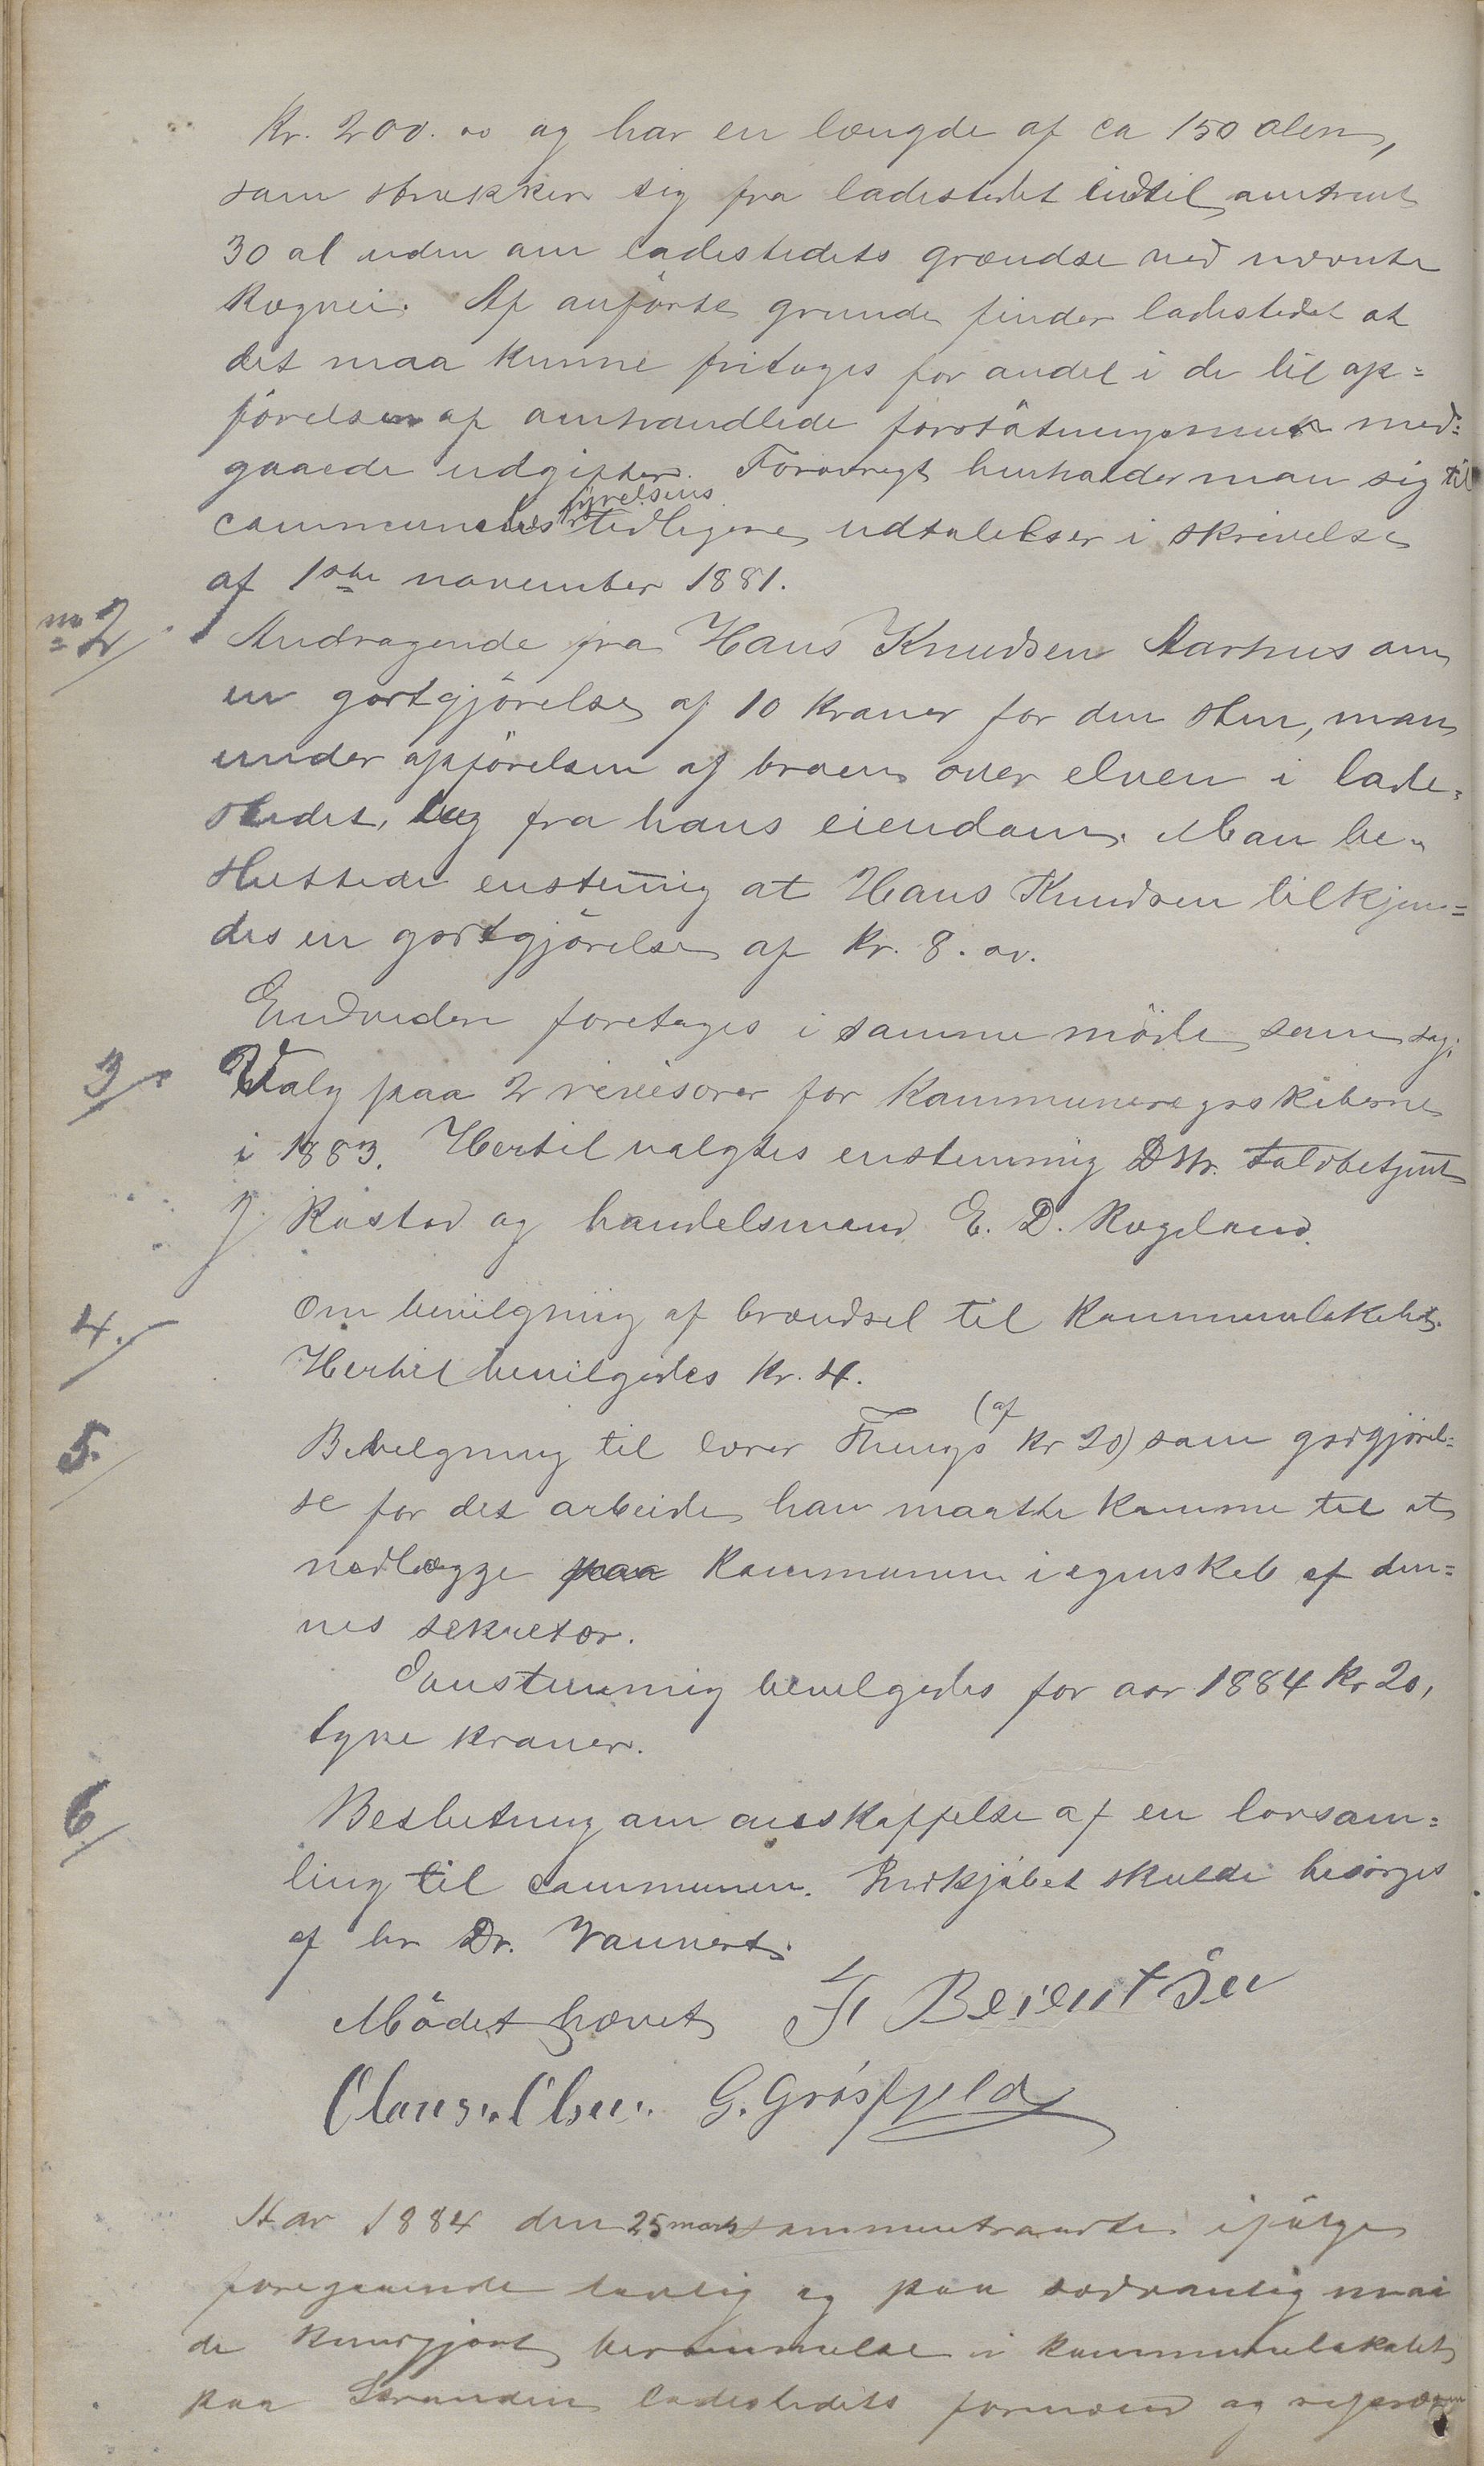 Kr. 200.00 og har en længde af ca 150 alen,
som strækker sig fra ladestedet indtil omtrent
30 al uden om ladestedets grændse ved nævnte
Rægevei. Af anførte grunde finder ladestedet at
det maa kunne fritages for andel i de til op=
førelsen af omhandlede forstøtningsmur med=
gaaede udgifter. Forøvrigt henholder man sig til
communebestyrelsens tidligere udtalelser i skrivelse
af 1ste november 1881.
no 2 Andragende fra Hans Knudsen Aarhus om
en gortgjørelse af 10 kroner for den sten, man
under opførelsen af broen over elven i lade=
stedet, tog fra hans eiendom. Man be=
sluttede enstemig at Hans Knudsen tilkjen=
des en gortgjørelse af Kr. 8.00.
Endvidere foretages i samme møde som sag:
3 Valg paa 2 revisorer for Kommuneregnskaberne
i 1883. Hertil valgtes enstemmig DHr. toldbetjent
J. Rostad og handelsmand E. D. Rægeland.
4. Om bevilgning af brændsel til Kommunelokalet.
Hertil bevilgedes Kr. 4.
5. Bevilgning til lærer Thungs (af Kr 20) som godgjørel=
se for det arbeide han maatte komme til at
nedlægge paa Kommunen i egenskab af den=
nes sekretær.
Eenstemmig bevilgedes for aar 1884 Kr 20,
tyve kroner.
6 Beslutning om anskaffelse af en lovsam=
ling til communen. Indkjøbet skulde besørges
af hr Dr. Vannert.
Mødet hævet Fr Beientsen
Claus. Olsen. G. Grøsfjeld
Aar 1884 den 25 marts sammentraadte ifølge
foregaaende lovlig og paa sedvanlig maa
de kundgjort berammelse i kommunelokalet
paa Stranden ladestedets formænd og repræsen